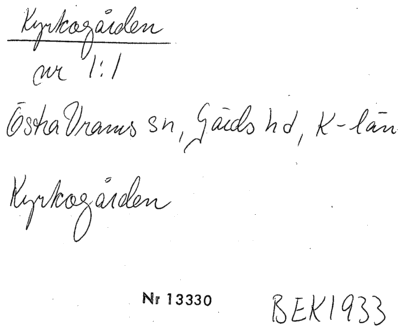 Kyrkogården
nr 1:1
Östra Vrams sn, Gärds hd, K-län
Kyrkogården
Nr 13330 BEK1933